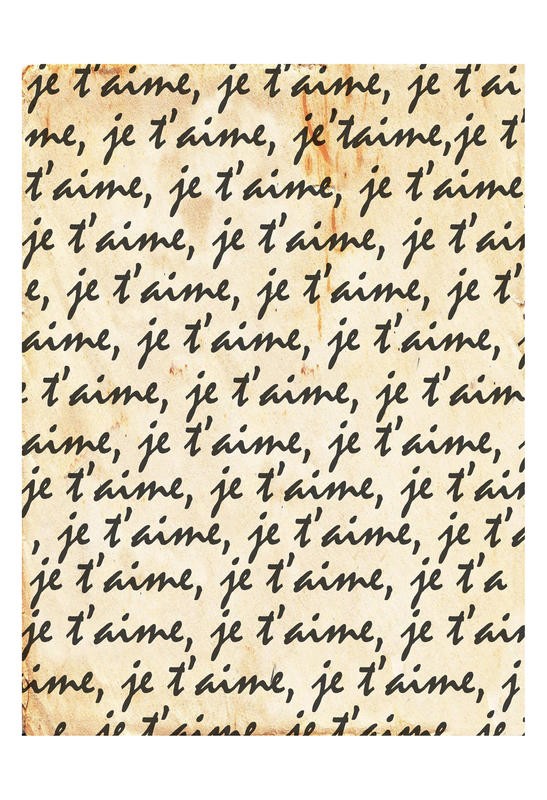 je t'aime, je t'aime, je t'ai
me, je t'aime, je'taime,je t'
t'aime, je t'aime, je t'aime
je t'aime, je t'aime, je t'ai
e, je t'aime, je t'aime, je t'
aime, je t'aime, je t'aime, j
t'aime, je t'aime, je t'aim
aime, je t'aime, je t'aime,
je t'aime, je t'aime, je t'ai
, je t'aime, je t'aime, je t'a
je t'aime, je t'aime, je t'a
je t'aime, je t'aime, je t'ai
ime, je t'aime, je t'aime, j
e, je t'aime, je t'aime, je t'